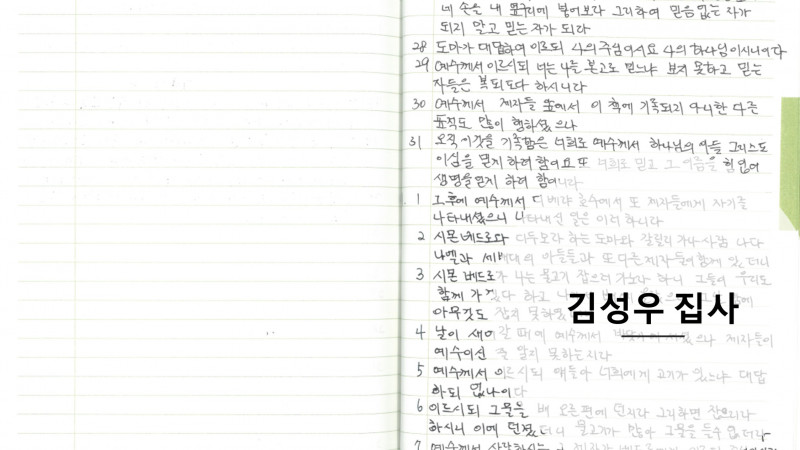 네 손을 내 옆구리에 넣어보라 그리하여 믿음 없는 자가
되지 말고 믿는 자가 되라
28 도마가 대답하여 이르되 나의 주님이시요 나의 하나님이시니이다
29 예수께서 이르시되 너는 나를 본고로 믿느냐 보지 못하고 믿는
자들은 복되도다 하시니라
30 예수께서 제자들 앞에서 이 책에 기록되지 아니한 다른
표적도 많이 행하셨으나
31 오직 이것을 기록함은 너희로 예수께서 하나님의 아들 그리스도
이심을 믿게 하려 함이요 또 너희로 믿고 그 이름을 힘입어
생명을 얻게 하려 함이니라
1 그 후에 예수께서 디베랴 호수에서 또 제자들에게 자기를
나타내셨으니 나타내신 일은 이러하니라
2 시몬 베드로와 디두모라 하는 도마와 갈릴리 가나 사람 나다
나엘과 세베대의 아들들과 또 다른 제자 둘이 함께 있더니
3 시몬 베드로가 나는 물고기 잡으러 가노라 하니 그들이 우리도
함께 가겠다 하고
아무것도 잡지 못하였
김성우 집사
4 날이 새어갈 때에 예수께서 바닷가에 서셨으나 제자들이
예수이신 줄 알지 못하는지라
5 예수께서 이르시되 얘들아 너희에게 고기가 있느냐 대답
하되 없나이다
6 이르시되 그물을 배 오른편에 던지라 그리하면 잡으리라
하시니 이에 던졌더니 물고기가 많아 그물을 들 수 없더라
7 예수께서 사랑하시는 그 제자가 베드로에게